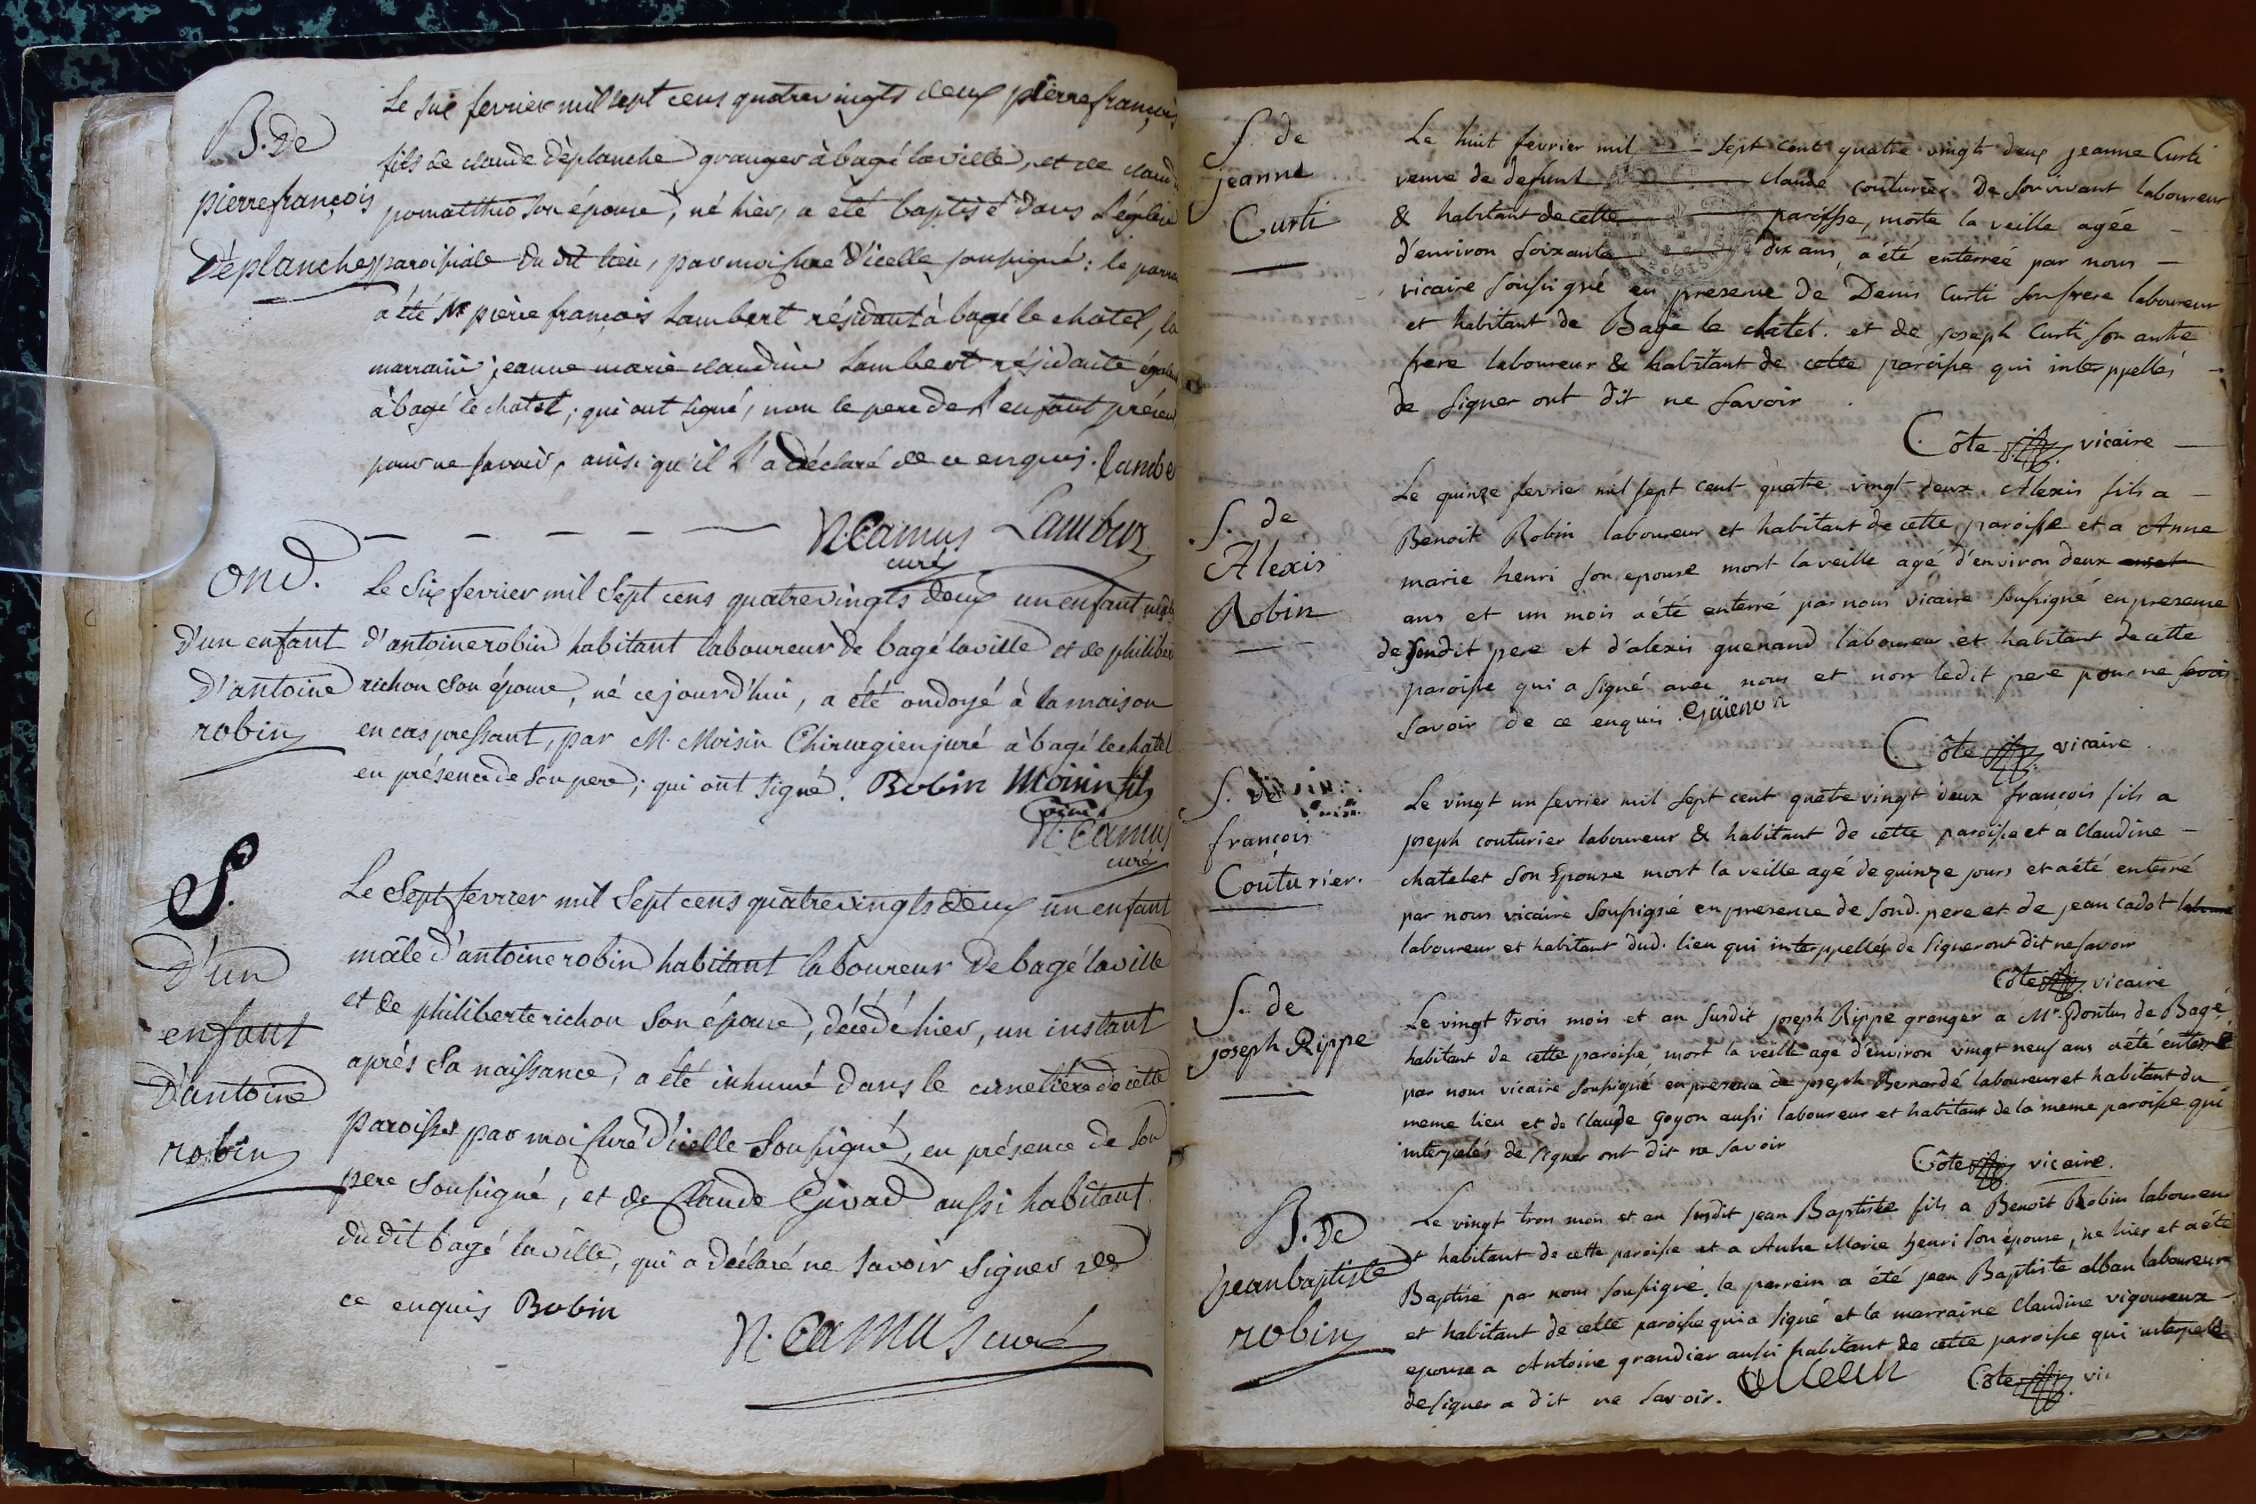 B. De
pierre françois
Déplanche
Le six fevrier mil sept cens quatrevingts deux pierre françois
fils de claude déplanche granger à bagé laville, et de claud
pomatthio son épouse, né hier, a été baptisé dans l'église
paroissiale du dit lieu, par moi curé d'icelle soussigné: le parrain
a été Mr pierre françois Lambert résidant à bagé le chatel, la
marraine jeanne marie claudine Lambert résidante égalem
à bagé le chatel; qui ont signé, non le pere de l'enfant présent,
pour ne savoir, ainsi qu'il l'a déclaré de ce enquis. Lambe
N. Camus Lambert
curé
ond.
d'un enfant
d'antoine
robin
Le Six fevrier mil Sept cens quatrevingts deux un enfant mâle
d'antoine robin habitant laboureur de bagé laville et de philiber
richon son épouse, né cejourd'hui, a été ondoyé à la maison
en cas pressant, par M. Moisin Chirurgien juré à bagé le chatel
en présence de son pere; qui ont signé. Robin Moinin fils
N. Camus
curé
S.
D'un
enfant
D'antoine
robin
Le Sept fevrier mil Sept cens quatrevingts deux un enfant
mâle d'antoine robin habitant laboureur de bagé laville
et de philiberte richon son épouse, décédé hier, un instant
après sa naissance, a été inhumé dans le cimetière de cette
paroisse par moi curé d'icelle soussigné, en présence de son
pere soussigné, et de Claude Givad aussi habitant
du dit bagé laville, qui a déclaré ne savoir signer de
ce enquis Robin
N. Camus curé
S. de
jeanne
Curti
Le huit fevrier mil sept cent quatre vingt deux jeanne Curti
veuve de defunt claude couturier de son vivant laboureur
& habitant de cette paroisse, morte la veille agée
d'environ soixante dix ans, a été enterrée par nous
vicaire soussigné en presence de Denis Curti son frere laboureur
et habitant de Bagé le chatel. et de joseph Curti son autre
frere laboureur & habitant de cette paroisse qui interppellés
de signer ont dit ne savoir
Côte vicaire
S. de
Alexis
Robin
Le quinze fevrier mil sept cent quatre vingt deux Alexis fils a
Benoit Robin laboureur et habitant de cette paroisse et a Anne
marie henri son epouse mort la veille agé d'environ deux
ans et un mois a été enterré par nous vicaire soussigné en presence
de sondit pere et d'alexis guenand laboureur et habitant de cette
paroisse qui a signé avec nous et non ledit pere pour ne
savoir de ce enquis. Guienon
Côte vicaire
S. de
françois
Couturier.
Le vingt un fevrier mil sept cent quatre vingt deux françois fils a
joseph couturier laboureur & habitant de cette paroisse et a Claudine
chatelet son Epouse mort la veille agé de quinze jours et a été enterré
par nous vicaire soussigné en presence de sond. pere et de jean cadot
laboureur et habitant dud. lieu qui interppellés de signer ont dit ne savoir
Côte vicaire
S. de
joseph Rippe
Le vingt trois mois et an susdit joseph Rippe granger a Mr. de Bagé
habitant de cette paroisse mort la veille agé d'environ vingt neuf ans a été enterré
par nous vicaire soussigné en presence de joseph Bernardé laboureur et habitant du
meme lieu et de Claude Goyon aussi laboureur et habitant de la meme paroisse qui
interpelés de signer ont dit ne savoir
Côte vicaire.
B. De
jean baptiste
robin
Le vingt trois mois et an susdit jean Baptiste fils a Benoit Robin laboureur
et habitant de cette paroisse et a Anne Marie henri son épouse, né hier et a été
Baptisé par nous soussigné. le parrein a été jean Baptiste alban laboureur
et habitant de cette paroisse qui a signé et la marraine Claudine vigoureux
epouse a Antoine grandier aussi habitant de cette paroisse qui interpelé
de signer a dit ne savoir.
Côte vic